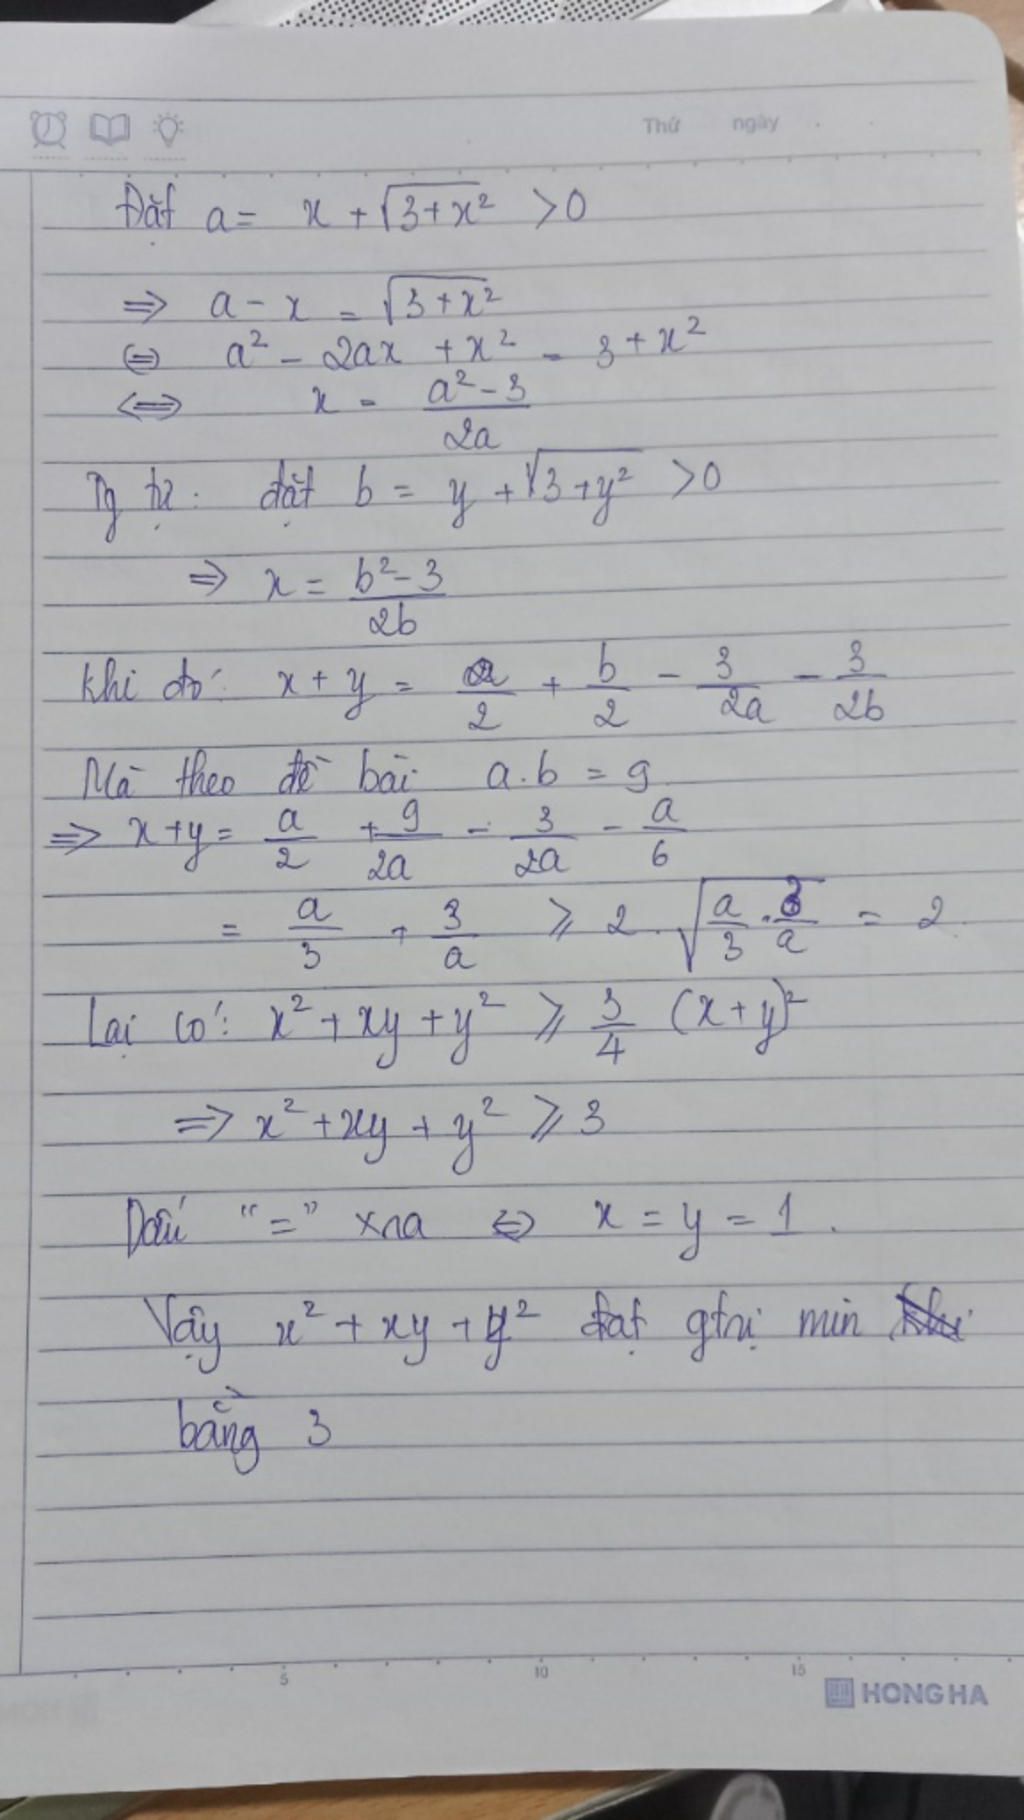 Thứ ngày
Đặt a = x + √(3+x²) > 0
⇒ a - x = √(3+x²)
⇔ a² - 2ax + x² = 3 + x²
⇔ x = (a² - 3)/(2a)
Tg tự: đặt b = y + √(3+y²) > 0
⇒ x = (b² - 3)/(2b)
Khi đó: x + y = a/2 + b/2 - 3/(2a) - 3/(2b)
Mà theo đề bài a.b = 9
⇒ x + y = a/2 + 9/(2a) - 3/(2a) - a/6
= a/3 + 3/a ⩾ 2.√(a/3 . 3/a) = 2
Lại có: x² + xy + y² ⩾ 3/4 (x + y)²
⇒ x² + xy + y² ⩾ 3
Dấu "=" xra ⇔ x = y = 1.
Vậy x² + xy + y² đạt gtrị min khi
bằng 3
5 10 15
HONG HA